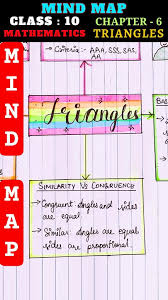 MIND MAP
CLASS : 10 CHAPTER - 6
MATHEMATICS TRIANGLES
• Criteria:- AAA, SSS, SAS,
AA
Triangles
MIND
MAP
SIMILARITY VS CONGRUENCE
• Congruent: Angles and sides
are equal.
• Similar: Angles are equal
sides are proportional.